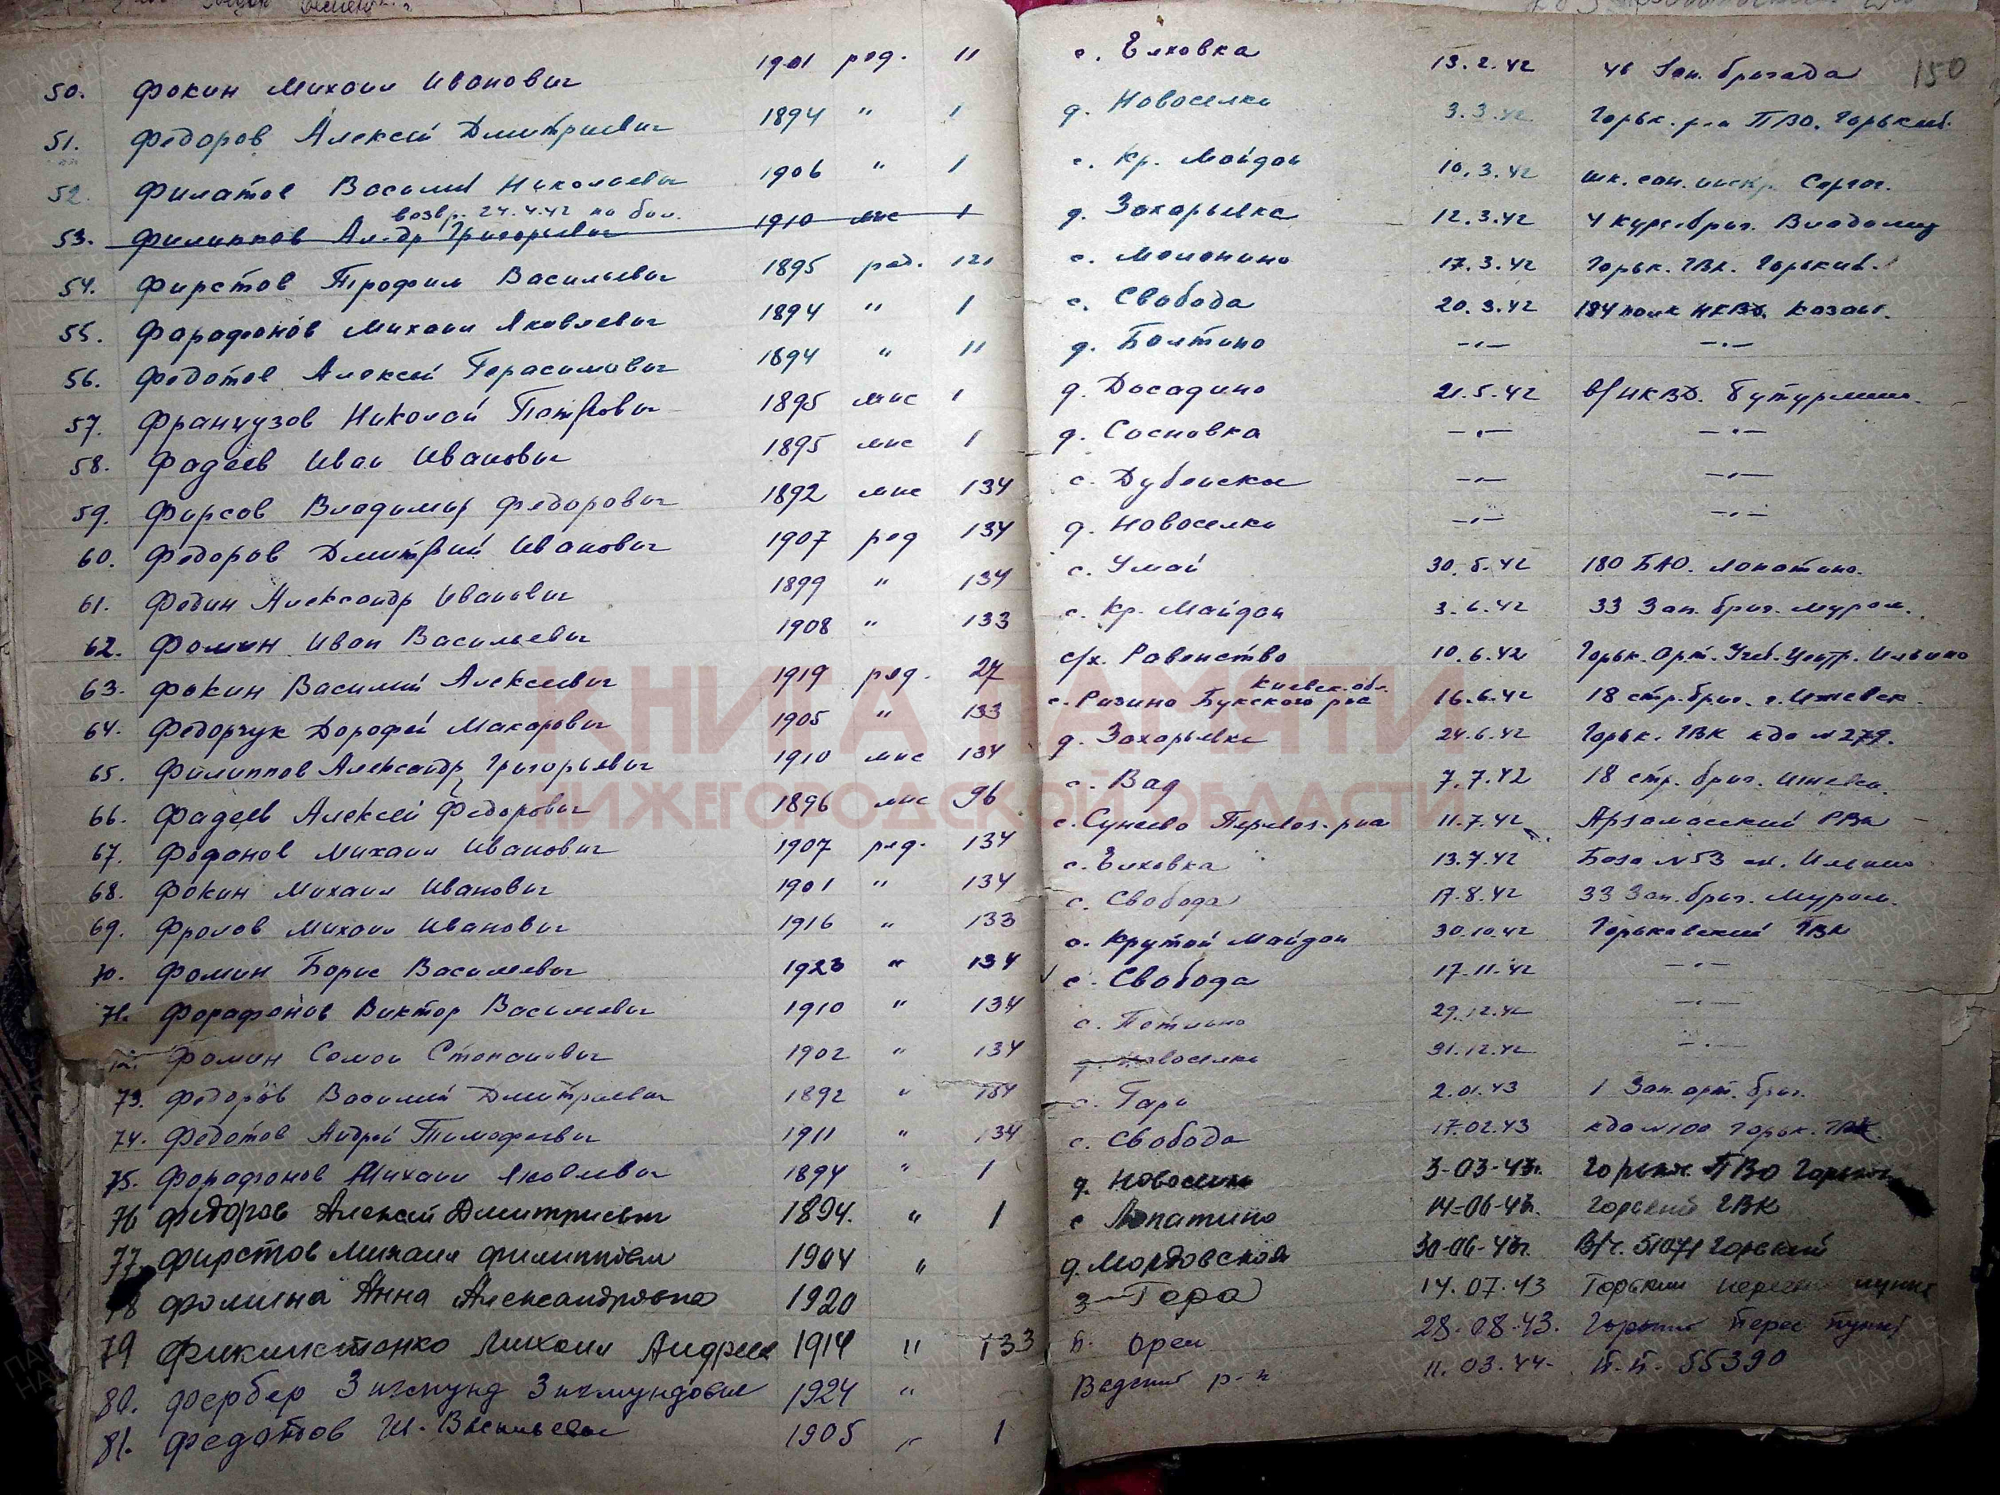 150
50. Фокин Михаил Иванович 1901 ряд. 11 с. Елховка 13.2.42 46 Зап. бригада
51. Федоров Алексей Дмитриевич 1894 " 1 д. Новоселки 3.3.42 Горьк. р-н ПВО. Горький.
52. Филатов Василий Николаевич 1906 " 1 с. Кр. Майдан 10.3.42 шк. сан. инстр. Сергач.
возвр. 24.4.42 по бол.
53. Филиппов Алекдр Григорьевич 1910 мнс 1 д. Захарьевка 12.3.42 4 курс. бриг. Владимир
54. Фирстов Трофим Васильевич 1895 ряд. 121 с. 17.3.42 Горьк. ГВК. Горький.
55. Фарафонов Михаил Яковлевич 1894 " 1 с. Свобода 20.3.42 184 полк НКВД. Казань.
56. Федотов Алексей Герасимович 1894 " 11 д. Болтино —"— —"—
57. Французов Николай Петрович 1895 мнс 1 д. Досадино 21.5.42 в/ НКВД. Бутурлино.
58. Фадеев Иван Иванович 1895 мнс 1 д. Сосновка —"— —"—
59. Фирсов Владимир Федорович 1892 мнс 134 с. Дубенская —"— —"—
60. Федоров Дмитрий Иванович 1907 ряд 134 д. Новоселки —"— —"—
61. Федин Александр Иванович 1899 " 134 с. Умай 30.5.42 180 БАО. Лопатино.
62. Фомин Иван Васильевич 1908 " 133 с. Кр. Майдан 3.6.42 33 Зап. бриг. Муром.
63. Фокин Василий Алексеевич 1919 ряд. 27 с/х. Равенство 10.6.42 Горьк. Арт. Учеб. Центр. Ильино
Киевск. обл.
64. Федорчук Дорофей Макарович 1905 " 133 с. Ризино Букского р-на 16.6.42 18 стр. бриг. г. Ижевск.
65. Филиппов Александр Григорьевич 1910 мнс 134 д. Захарьевка 24.6.42 Горьк. ГВК кда № 279.
66. Фадеев Алексей Федорович 1896 мнс 96 с. Вад 7.7.42 18 стр. бриг. Ижевск.
67. Фофанов Михаил Иванович 1907 ряд. 134 с. Сунеево Перевоз. р-на 11.7.42 Арзамасский РВК
68. Фокин Михаил Иванович 1901 " 134 с. Елховка 13.7.42 База № 53 ст. Ильино
69. Фролов Михаил Иванович 1916 " 133 с. Свобода 17.8.42 33 Зап. бриг. Муром.
70. Фомин Борис Васильевич 1923 " 134 с. Крутой Майдан 30.10.42 Горьковский ГВК
71. Фарафонов Виктор Васильевич 1910 " 134 с. Свобода 17.11.42 —"—
72. Фомин Семен Степанович 1902 " 134 с. Петлино 29.12.42 —"—
73. Федоров Василий Дмитриевич 1892 " 134 д. Новоселки 31.12.42 —"—
74. Федотов Андрей Тимофеевич 1911 " 134 с. Гари 2.01.43 1 Зап. арт. бриг.
75. Фарафонов Михаил Яковлевич 1894 " 1 с. Свобода 17.02.43 кда № 100 Горьк. ГВК.
76 Федоров Алексей Дмитриевич 1894. " 1 д. Новоселки 3-03-43г. Горьк. ПВО Горький
77. Фирстов Михаил Филиппович 1904 " с Лопатино 14-06-43г. Горьский ГВК
78 Фомина Анна Александровна 1920 д. Мордовской 30-06-43г. В/ч. 51071 Горьский
79 Михаил Андреев 1914 " 133 14.07.43 Горький пересы пункт
80. Фербер Зигмунд Зигмундович 1924 " п. 28.08.43. Горький Перес пункт
81. Федотов И. Васильевич 1905 " 1 Вадский р-н 11.03.44. П.П. 55390
КНИГА ПАМЯТИ
НИЖЕГОРОДСКОЙ ОБЛАСТИ